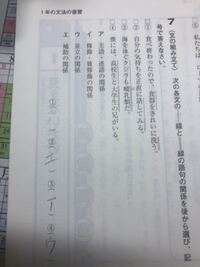 1年の文法の復習
7 〈文の組み立て〉 次の各文の――線と――線の語句の関係を後から選び、記
号で答えなさい。
① 食べ終わったので、食器をきれいに洗う。
② 自分の気持ちを正直に話してみる。
③ 海を泳ぐクジラも哺乳類だ。
④ 僕には、高校生と大学生の兄がいる。
ア 主語・述語の関係
イ 修飾・被修飾の関係
ウ 並立の関係
エ 補助の関係
②(エ)
④(ウ)